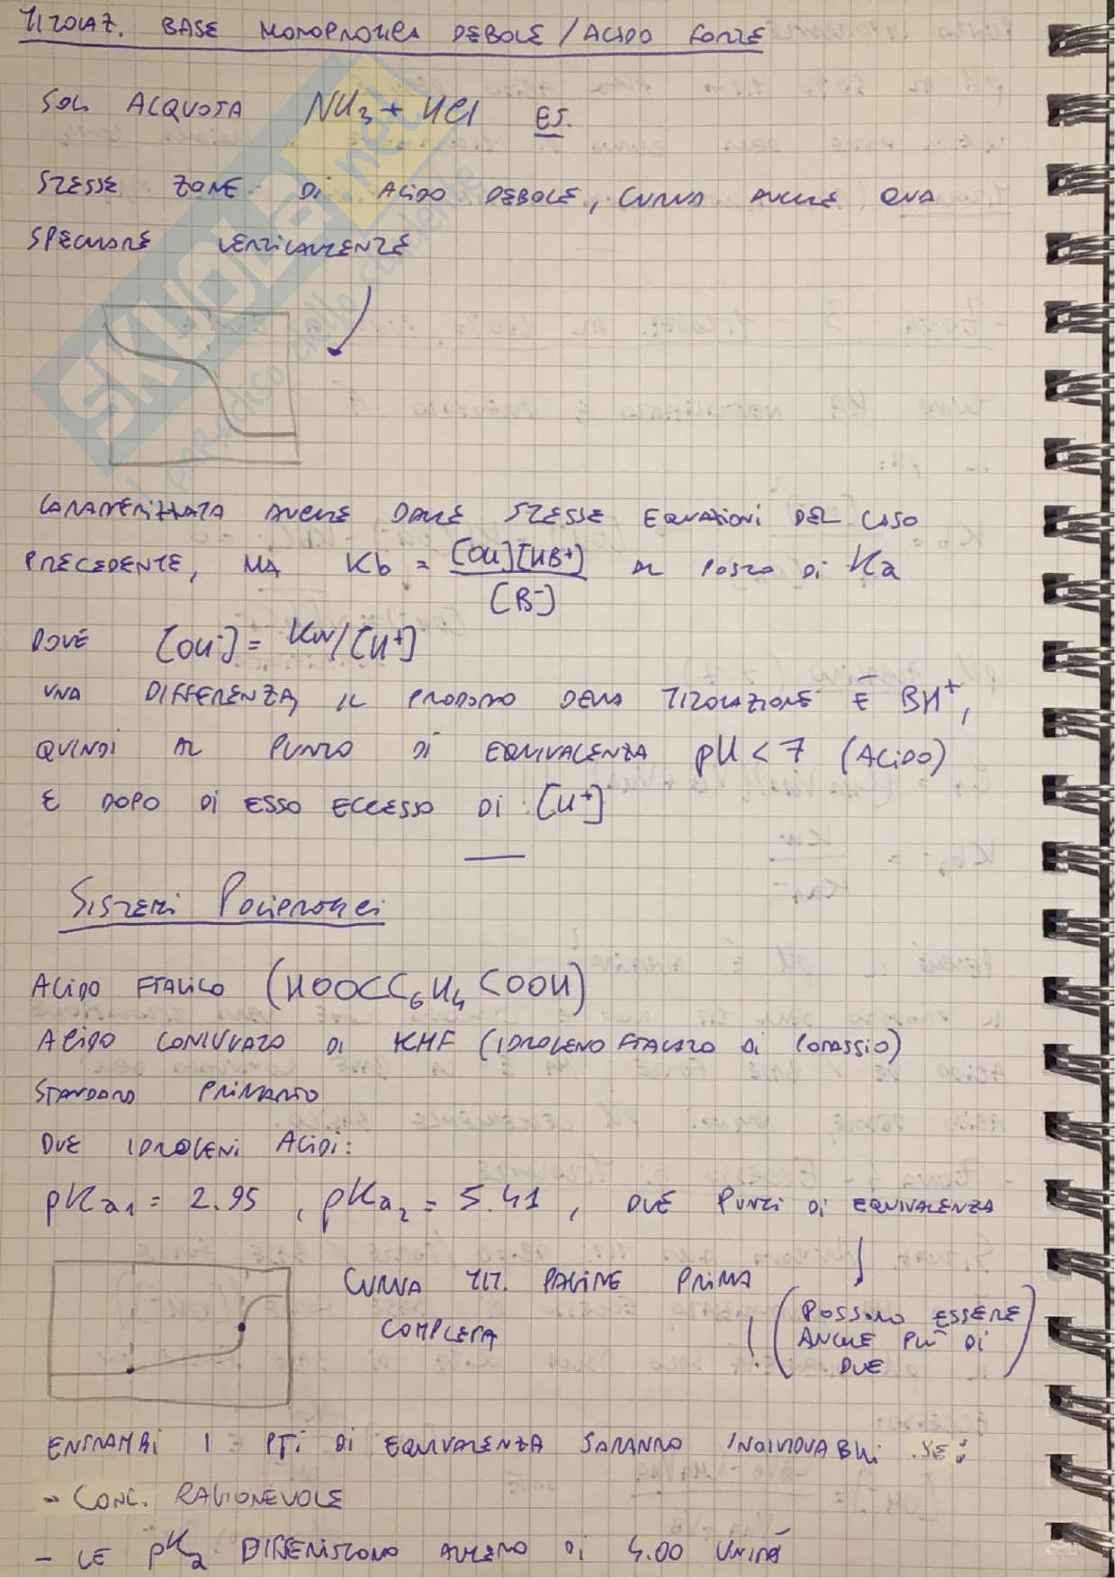 TITOLAZ. BASE MONOPROTICA DEBOLE / ACIDO FORTE
SOL ACQUOSA NH₃ + HCl ES.
STESSE ZONE DI ACIDO DEBOLE, CURVA ANCHE QUA
SPECULARE VERTICALMENTE
SKUOLA.net
CARATTERIZZATA ANCHE DALLE STESSE EQUAZIONI DEL CASO
PRECEDENTE, MA Kb = [OH][HB⁺] / [B⁻] AL POSTO DI Ka
DOVE [OH⁻] = Kw/[H⁺]
UNA DIFFERENZA, IL PRODOTTO DELLA TITOLAZIONE È BH⁺,
QUINDI AL PUNTO DI EQUIVALENZA pH < 7 (ACIDO)
E DOPO DI ESSO ECCESSO DI [H⁺]
SISTEMI POLIPROTICI
ACIDO FTALICO (HOOCC₆H₄COOH)
ACIDO CONIUGATO DI KHF (IDROGENO FTALATO DI POTASSIO)
STANDARD PRIMARIO
DUE IDROGENI ACIDI:
pKa₁ = 2.95, pKa₂ = 5.41, DUE PUNTI DI EQUIVALENZA
CURVA TIT. PAGINE PRIMA
COMPLETA
! (POSSONO ESSERE
ANCHE PIÙ DI
DUE)
ENTRAMBI I PTI DI EQUIVALENZA SARANNO INDIVIDUABILI SE:
- CONC. RAGIONEVOLE
- LE pKa DIFFERISCONO ALMENO DI 4.00 UNITÀ